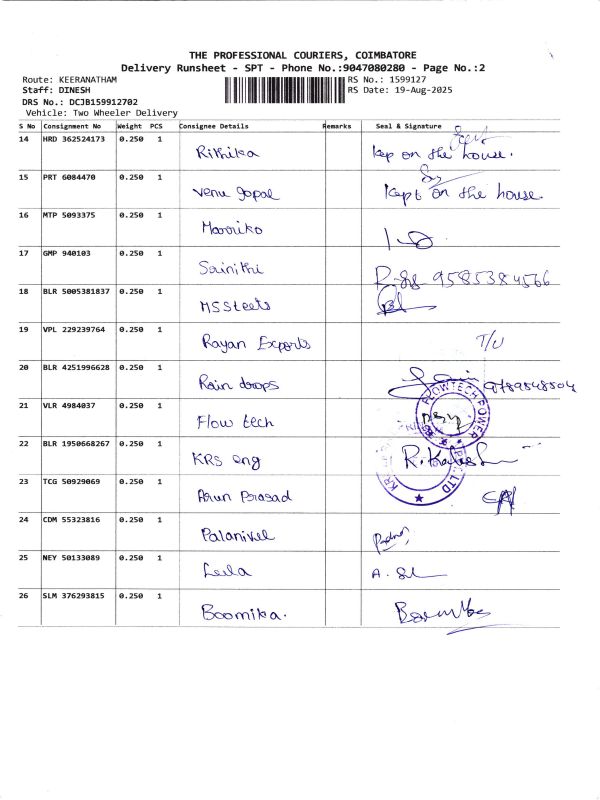 THE PROFESSIONAL COURIERS, COIMBATORE
Delivery Runsheet - SPT - Phone No.:9047080280 - Page No.:2
Route: KEERANATHAM RS No.: 1599127
Staff: DINESH RS Date: 19-Aug-2025
DRS No.: DCJB159912702
Vehicle: Two Wheeler Delivery
S No Consignment No Weight PCS Consignee Details Remarks Seal & Signature
14 HRD 362524173 0.250 1 Rithika kep on the house.
15 PRT 6084470 0.250 1 Venu gopal kept on the house.
16 MTP 5093375 0.250 1
17 GMP 940103 0.250 1 Sainithi 9585384566
18 BLR 5005381837 0.250 1 MSSteets
19 VPL 229239764 0.250 1 Rayan Exports T/U
20 BLR 4251996628 0.250 1 Rain drops 9789548504
21 VLR 4984037 0.250 1 Flow tech FLOWTECH POWER
22 BLR 1950668267 0.250 1 KRS eng
23 TCG 50929069 0.250 1 Arun Prasad LTD
24 CDM 55323816 0.250 1 Palanivel
25 NEY 50133089 0.250 1 Leela
26 SLM 376293815 0.250 1 Boomika.